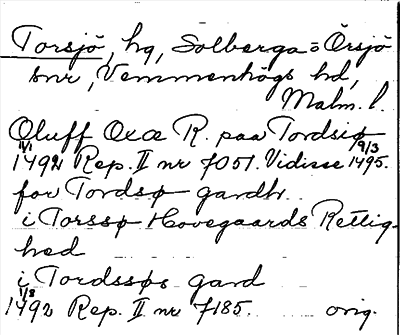 Torsjö, hg, Solberga = Örsjö
snr, Vemmenhögs hd,
Malm. l.
Oluff Oxæ R. paa Tordsiø
1/1 1492 Rep. II nr 7051. Vidisse 19/3 1495.
for Tordsø gardh..
i Torssø Hovegaards Rettig-
hed
i Tordssøs gard
1/8 1492 Rep. II nr 7185. orig.